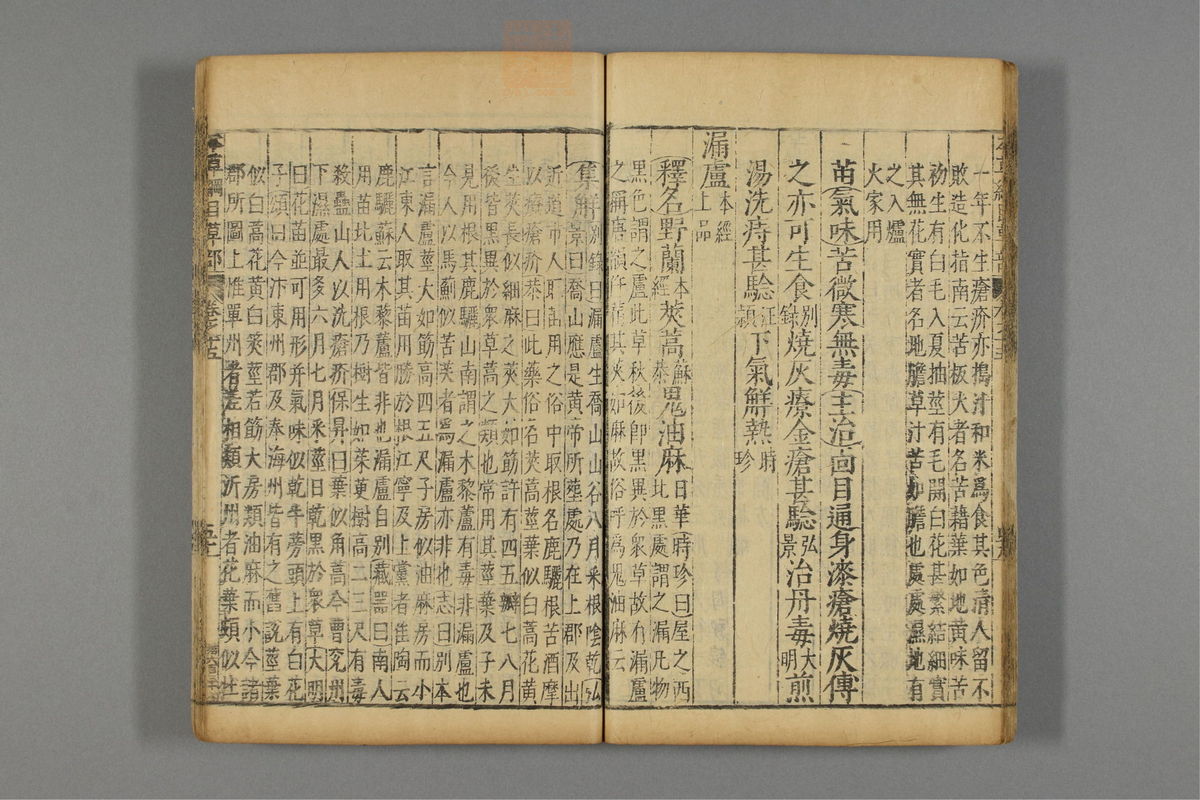 一年不生瘡疥亦搗汁和米爲食其色淸人留不
敗造化指南云苦板大者名苦藉葉如地黃味苦
初生有白毛入夏抽莖有毛開白花甚繁結細實
其無花實者名地膽草汁苦如膽也處處濕地有
之入爐
火家用
苗氣味苦微寒無毒主治面目通身漆瘡燒灰傅
之亦可生食別錄燒灰療金瘡甚驗弘景治丹毒大明煎
湯洗痔甚驗汪頴下氣解熱時珍
漏盧本經上品
釋名野蘭本經莢蒿蘇恭鬼油麻日華時珍曰屋之西
北黑處謂之漏凡物
黑色謂之盧此草秋後卽黑異於衆草故有漏盧
之稱唐韻作䕡其莢如麻故俗呼爲鬼油麻云
集解別錄曰漏盧生喬山山谷八月采根陰乾弘
景曰喬山應是黃帝所葬處乃在上郡及出
近道市人取苗用之俗中取根名鹿驪根苦酒摩
以療瘡疥恭曰此藥俗名莢蒿莖葉似白蒿花黃
生莢長似細麻之莢大如筯許有四五瓣七八月
後皆黑異於衆草蒿之類也常用其莖葉及子未
見用根其鹿驪山南謂之木黎蘆有毒非漏盧也
今人以馬薊似苦芺者爲漏盧亦非也志曰別本
言漏盧莖大如筯高四五尺子房似油麻房而小
江東人取其苗用勝於根江寧及上黨者佳陶云
鹿驪蘇云木藜蘆皆非也漏盧自別藏器曰南人
用苗北土用根乃樹生如茱萸樹高二三尺有毒
殺蠱山人以洗瘡疥保昇曰葉似角蒿今曹兗州
下濕處最多六月七月采莖日乾黑於衆草大明
曰花苗並可用形幷氣味似乾牛蒡頭上有白花
子頌曰今汴東州郡及秦海州皆有之舊說莖葉
似白蒿花黃白莢莖若筯大房類油麻而小今諸
郡所圖上惟單州者差相類沂州者花葉頗似牡
本草綱目草部 卷之十五